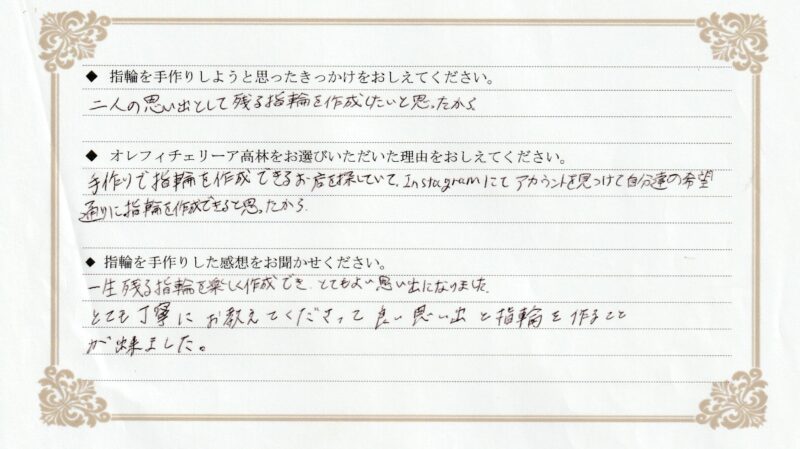 ◆ 指輪を手作りしようと思ったきっかけをおしえてください。
二人の思い出として残る指輪を作成したいと思ったから
◆ オレフィチェリーア高林をお選びいただいた理由をおしえてください。
手作りで指輪を作成できるお店を探していて、Instagramにてアカウントを見つけて自分達の希望
通りに指輪を作成できると思ったから.
◆ 指輪を手作りした感想をお聞かせください。
一生残る指輪を楽しく作成でき、とてもよい思い出になりました。
とても丁寧にお教えてくださって良い思い出と指輪を作ること
が出来ました。